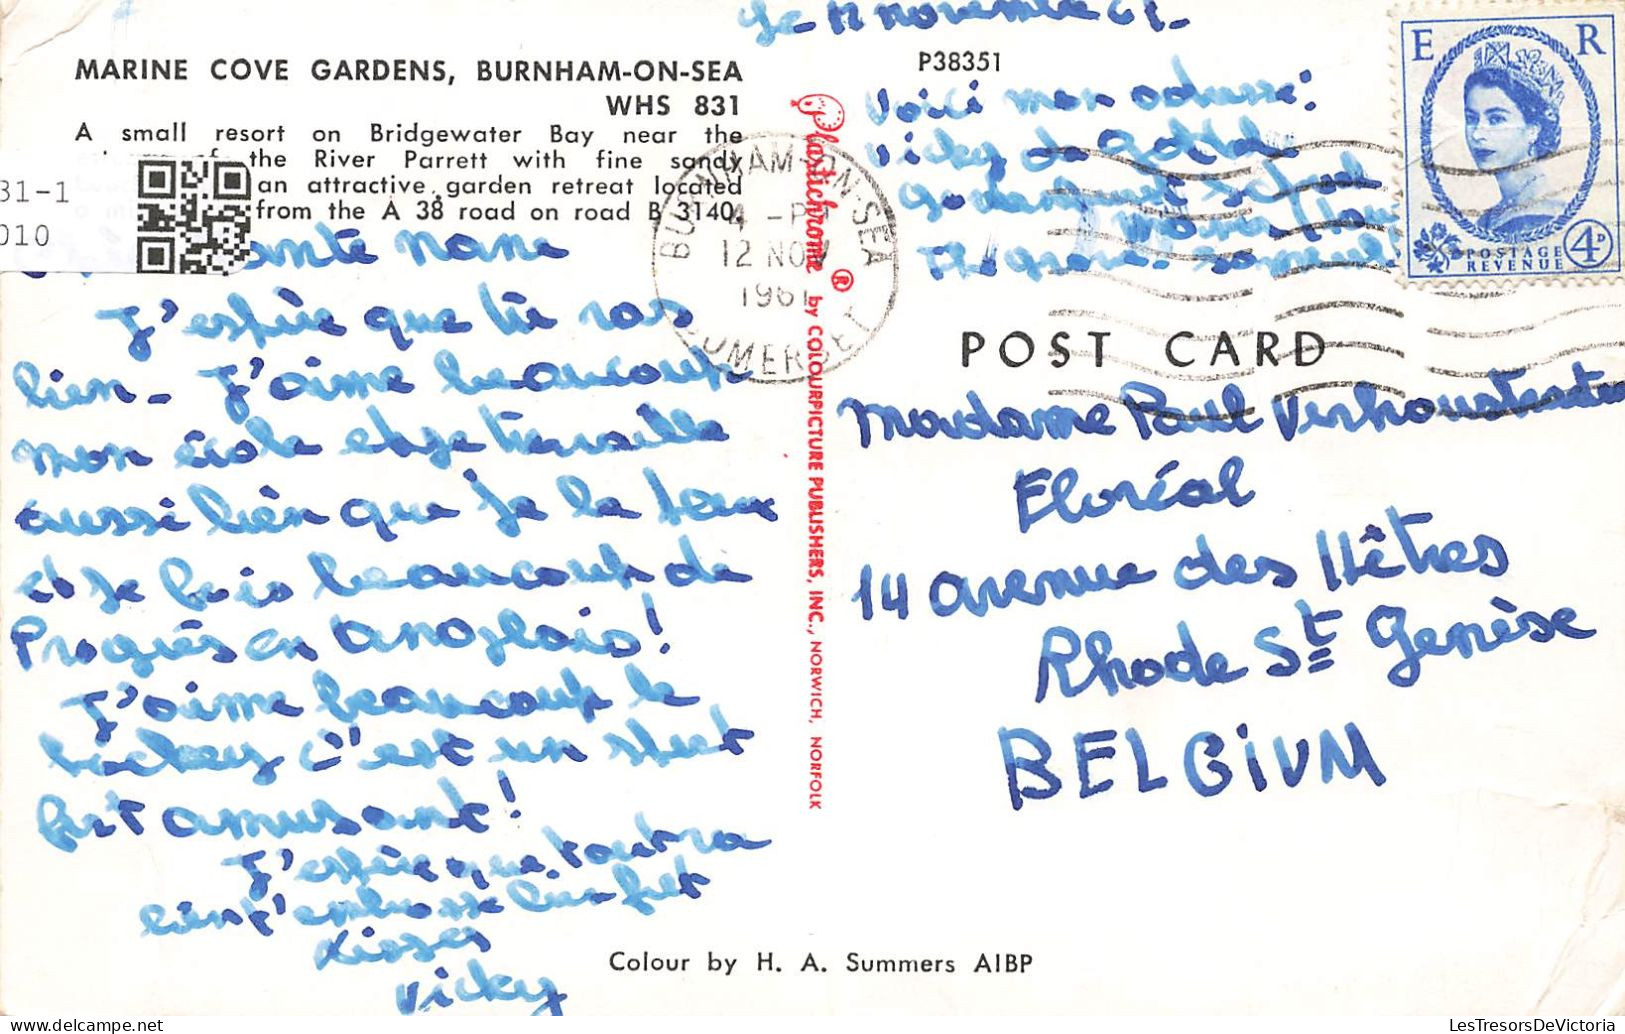 Le 12 novembre 61.
MARINE COVE GARDENS, BURNHAM-ON-SEA
WHS 831
A small resort on Bridgewater Bay near the
of the River Parrett with fine sandy
an attractive garden retreat located
from the A 38 road on road B 3140.
31-1
010
nane
J'espère que tu vas
bien. J'aime beaucoup
mon école et je travaille
aussi bien que je le peux
et je fais beaucoup de
Progrès en anglais!
J'aime beaucoup le
hockey c'est un sport
fort amusant!
J'espère que tout va
bien j'embrasse bien fort
Kisses
Vicky
Plastichrome ® by COLOURPICTURE PUBLISHERS, INC., NORWICH, NORFOLK
BURNHAM-ON-SEA
4 -PM
12 NOV
1961
SOMERSET
P38351
Voici mon adresse:
Vicky de
School
E R
POSTAGE
REVENUE
4D
POST CARD
Madame Paul
Floréal
14 avenue des Hêtres
Rhode St Genèse
BELGIUM
Colour by H. A. Summers AIBP
LesTresorsDeVictoria